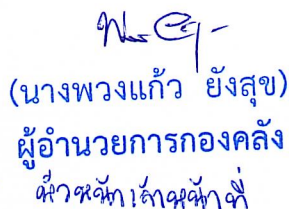 (นางพวงแก้ว ยังสุข)
ผู้อำนวยการกองคลัง
หัวหน้าเจ้าหน้าที่